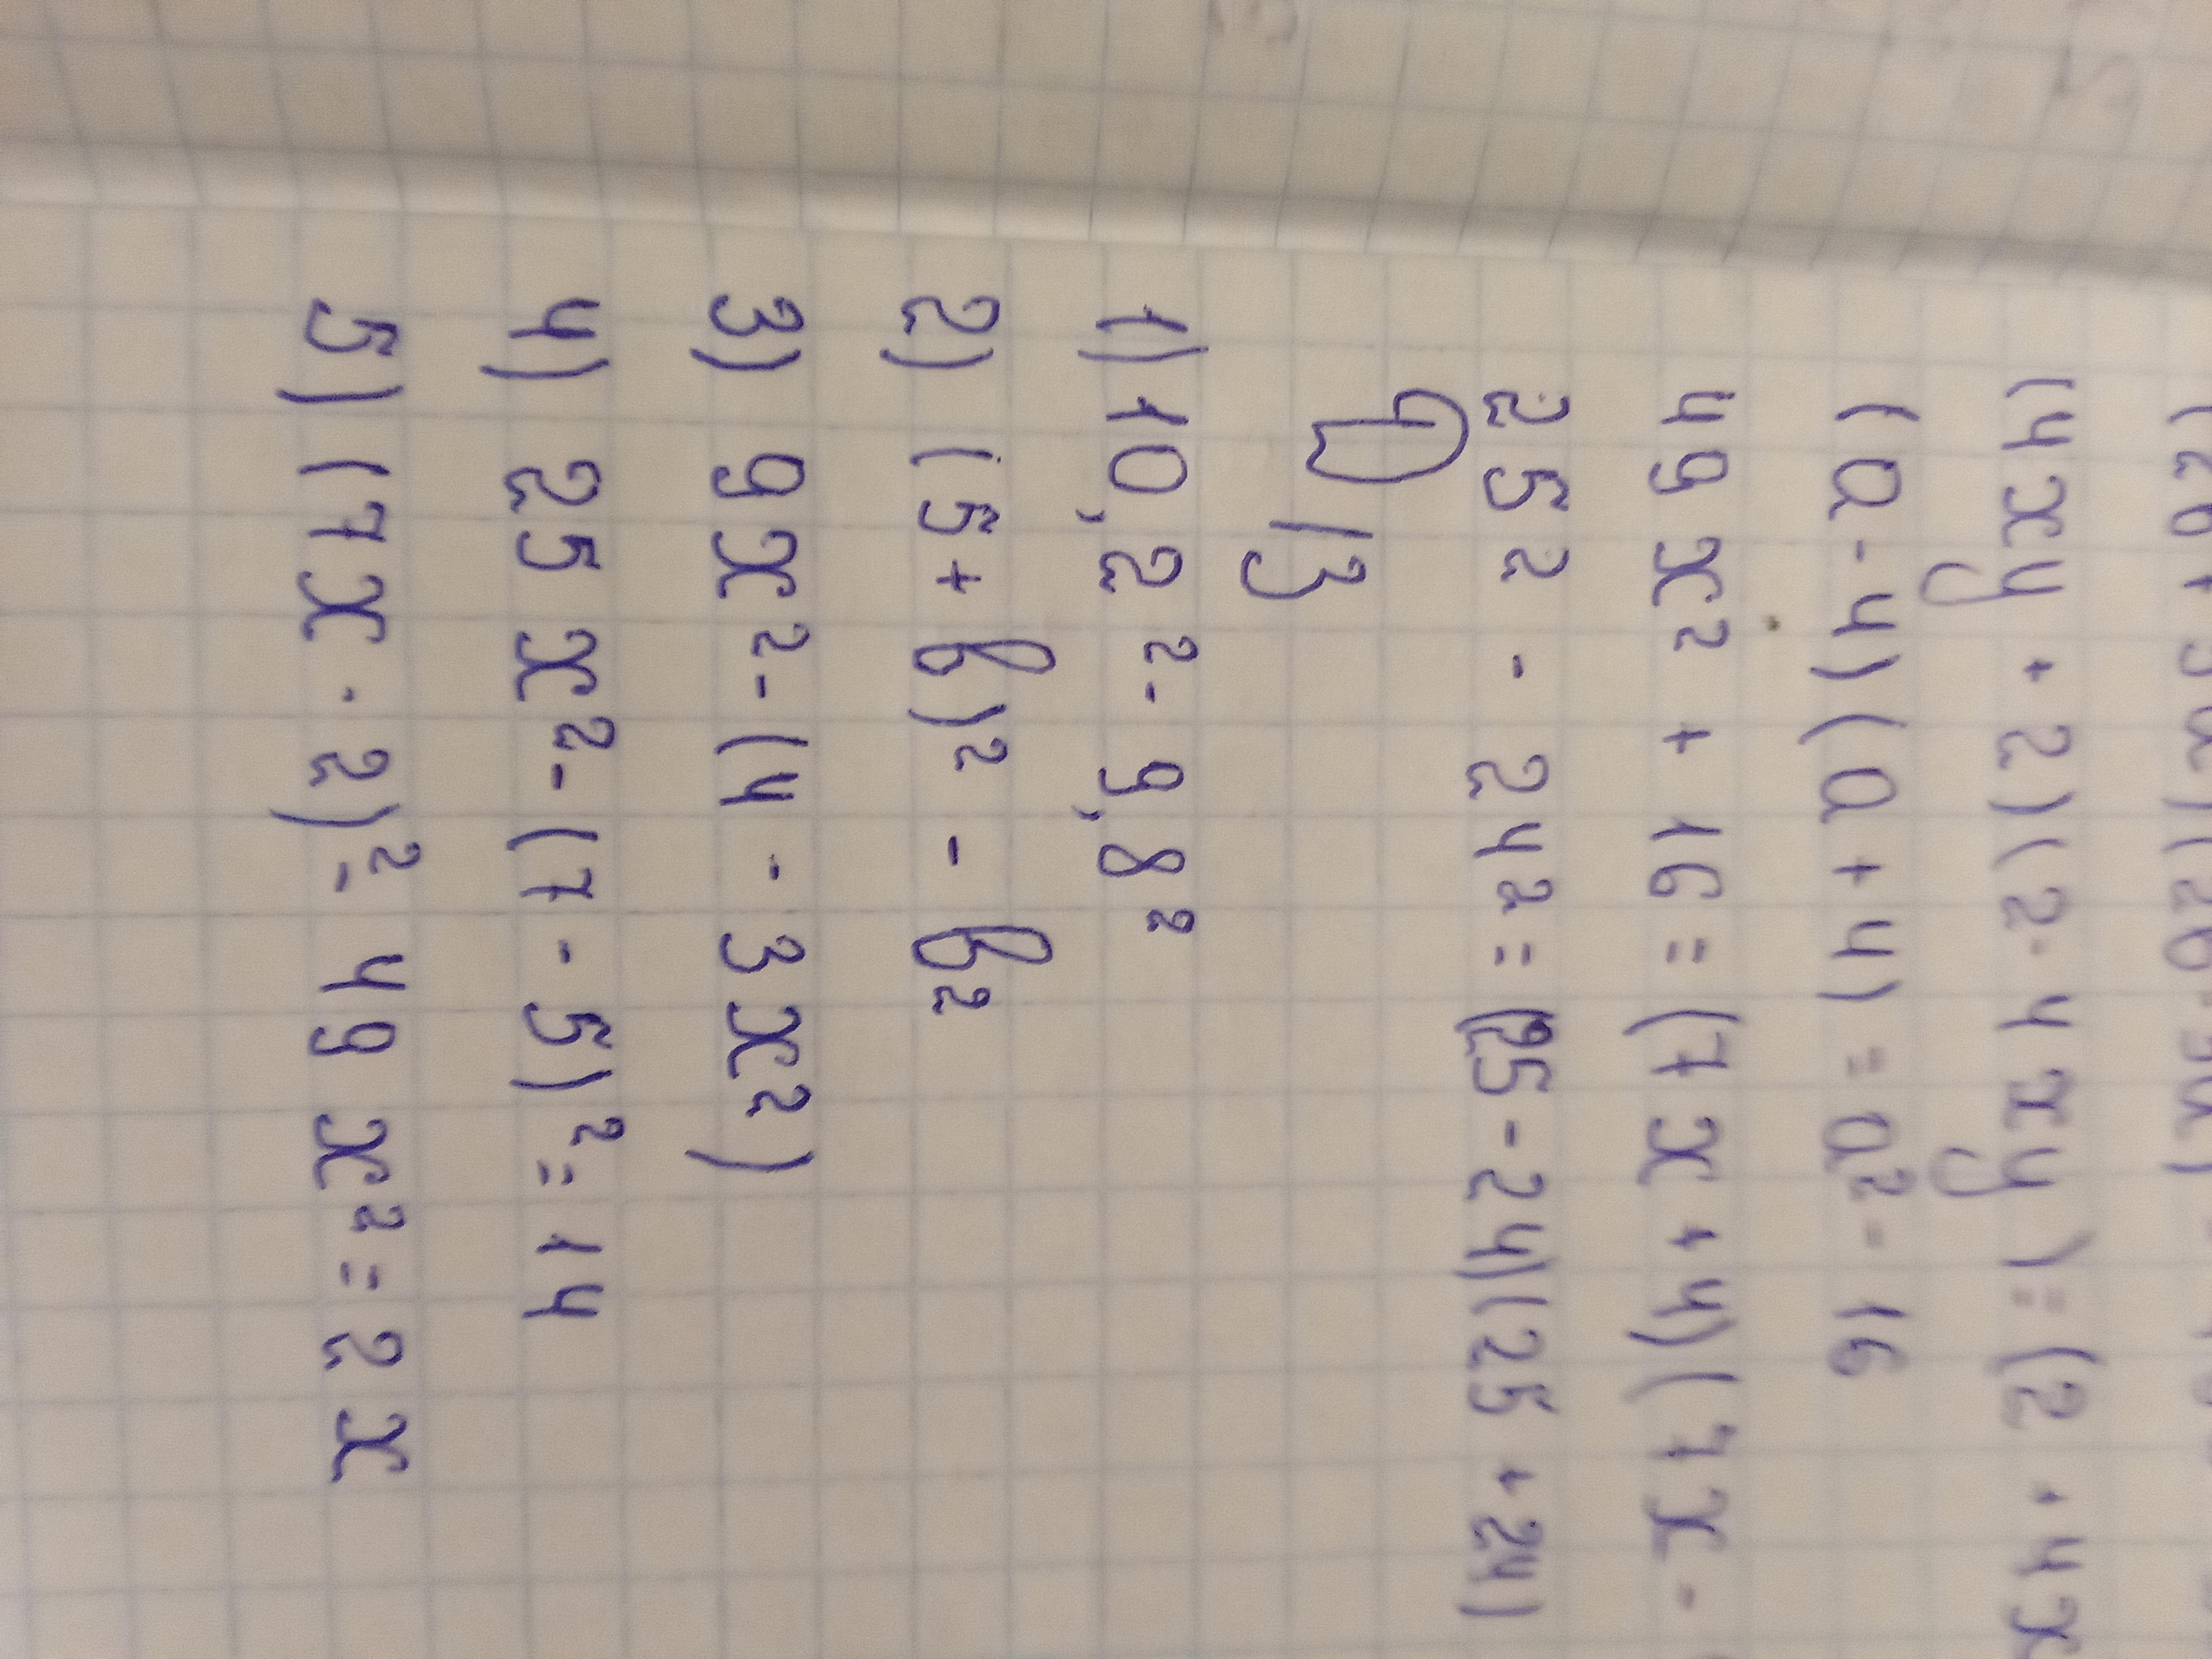 (4xy + 2)(2 - 4xy) = (2 + 4x
(a - 4)(a + 4) = a² - 16
49x² + 16 = (7x + 4)(7x -
25² - 24² = (25 - 24)(25 + 24)
Д/З
1) 10,2² - 9,8²
2) (5 + b)² - b²
3) 9x² - (4 - 3x²)
4) 25x² - (7 - 5)² = 14
5) (7x · 2)² - 49x² = 2x